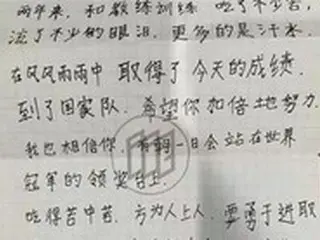 两年来，和教练训练 吃了不少苦，
流了不少的眼泪，更多的是汗水，
在风风雨雨中 取得了今天的成绩，
到了国家队，希望你加倍地努力，
我也相信你，有朝一日会站在世界
冠军的领奖台上，
吃得苦中苦，方为人上人，要勇于进取